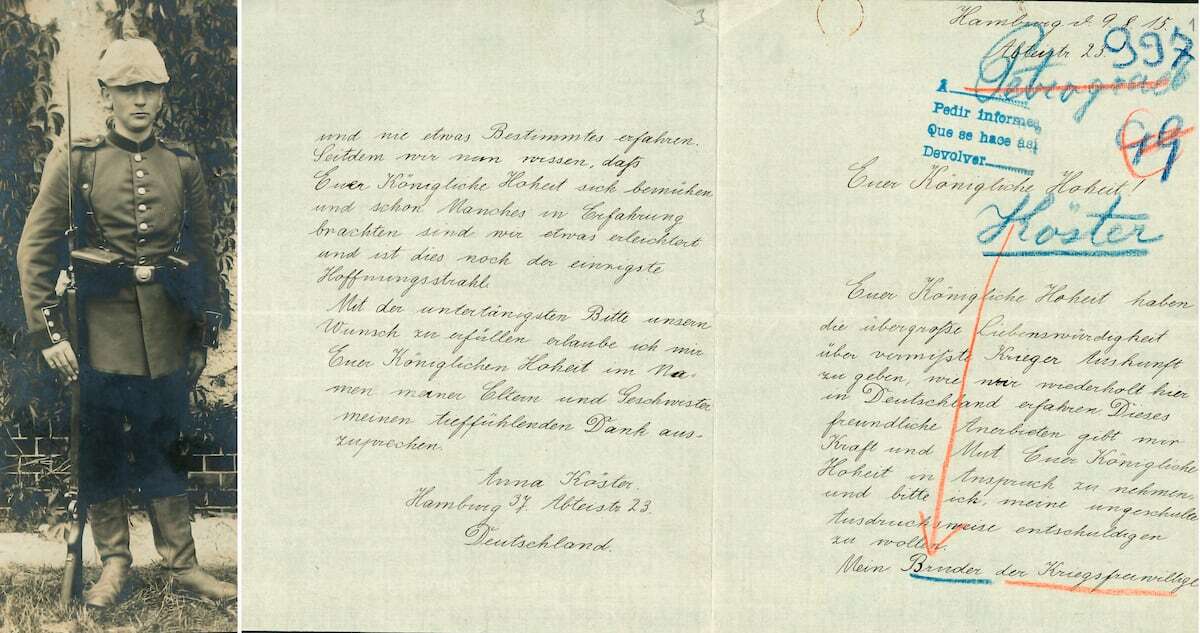 3
und nie etwas Bestimmtes erfahren.
Seitdem wir nun wissen, daß
Euer Königliche Hoheit sich bemühen
und schon Manches in Erfahrung
brachten sind wir etwas erleichtert
und ist dies noch der einzigste
Hoffnungsstrahl.
Mit der untertänigsten Bitte unsern
Wunsch zu erfüllen erlaube ich mir
Euer Königlichen Hoheit im Na-
men meiner Eltern und Geschwister
meinen tieffühlenden Dank aus-
zusprechen.
Anna Köster.
Hamburg 37. Abteistr 23.
Deutschland.
Hamburg d. 9. 8. 15.
Abteistr 23.
997
Petrograd
A
Pedir informes
Que se hace así
Devolver
99
Euer Königliche Hoheit!
Köster
Euer Königliche Hoheit haben
die übergroße Liebenswürdigkeit
über vermißte Krieger Auskunft
zu geben, wie wir wiederholt hier
in Deutschland erfahren Dieses
freundliche Anerbieten gibt mir
Kraft und Mut, Euer Königliche
Hoheit in Anspruch zu nehmen,
und bitte ich, meine ungeschulte
Ausdrucksweise entschuldigen
zu wollen.
Mein Bruder der Kriegsfreiwillige